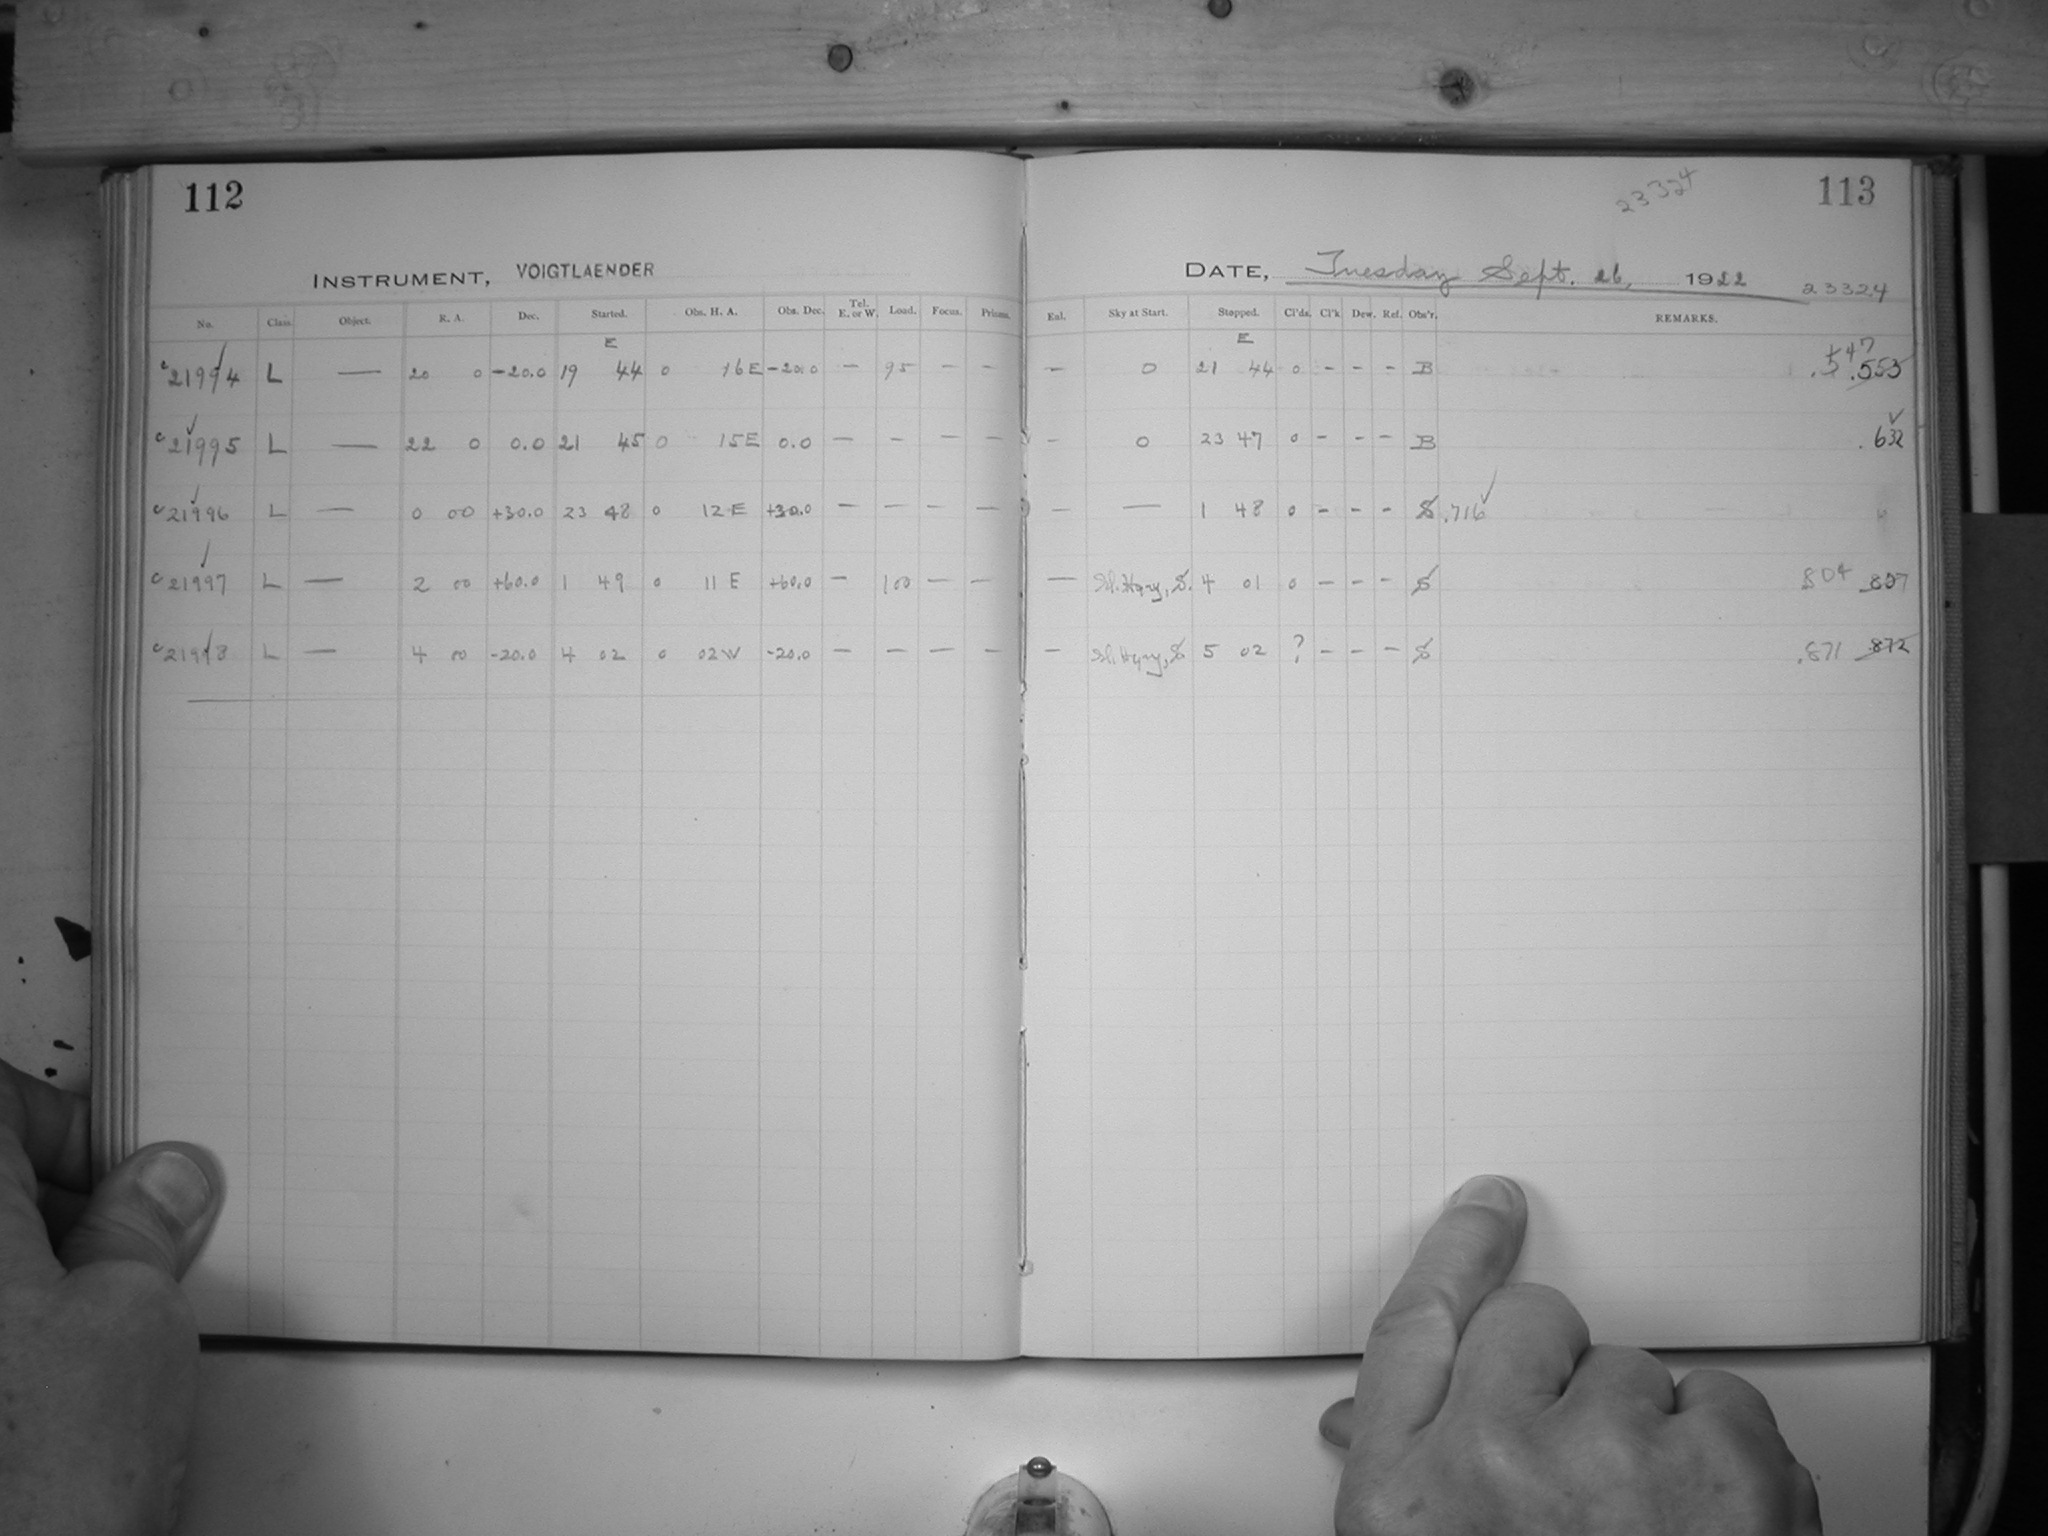 112
INSTRUMENT, VOIGTLAENDER
No. Class. Object. R. A. Dec. Started. Obs. H. A. Obs. Dec. Tel. E. or W. Load. Focus. Prisms.
E
c21994 L — 20 0 -20.0 19 44 0 16E -20.0 — 95 — —
c21995 L — 22 0 0.0 21 45 0 15E 0.0 — - — —
c21996 L — 0 00 +30.0 23 48 0 12E +30.0 — — — —
c21997 L — 2 00 +60.0 1 49 0 11E +60.0 — 100 — —
c21998 L — 4 00 -20.0 4 02 0 02W -20.0 — — — —
23324
113
DATE, Tuesday Sept. 26, 1922 23324
Enl. Sky at Start. Stopped. Cl'ds. Cl'k Dew. Ref. Obs'r. REMARKS.
E
— 0 21 44 0 - - - B .547 .553
- 0 23 47 0 - - - B .632
— — 1 48 0 - - - S .716
— Sl. Hazy, S. 4 01 0 - - - S 804 .807
— Sl. Hazy, S 5 02 ? - - - S .871 .872